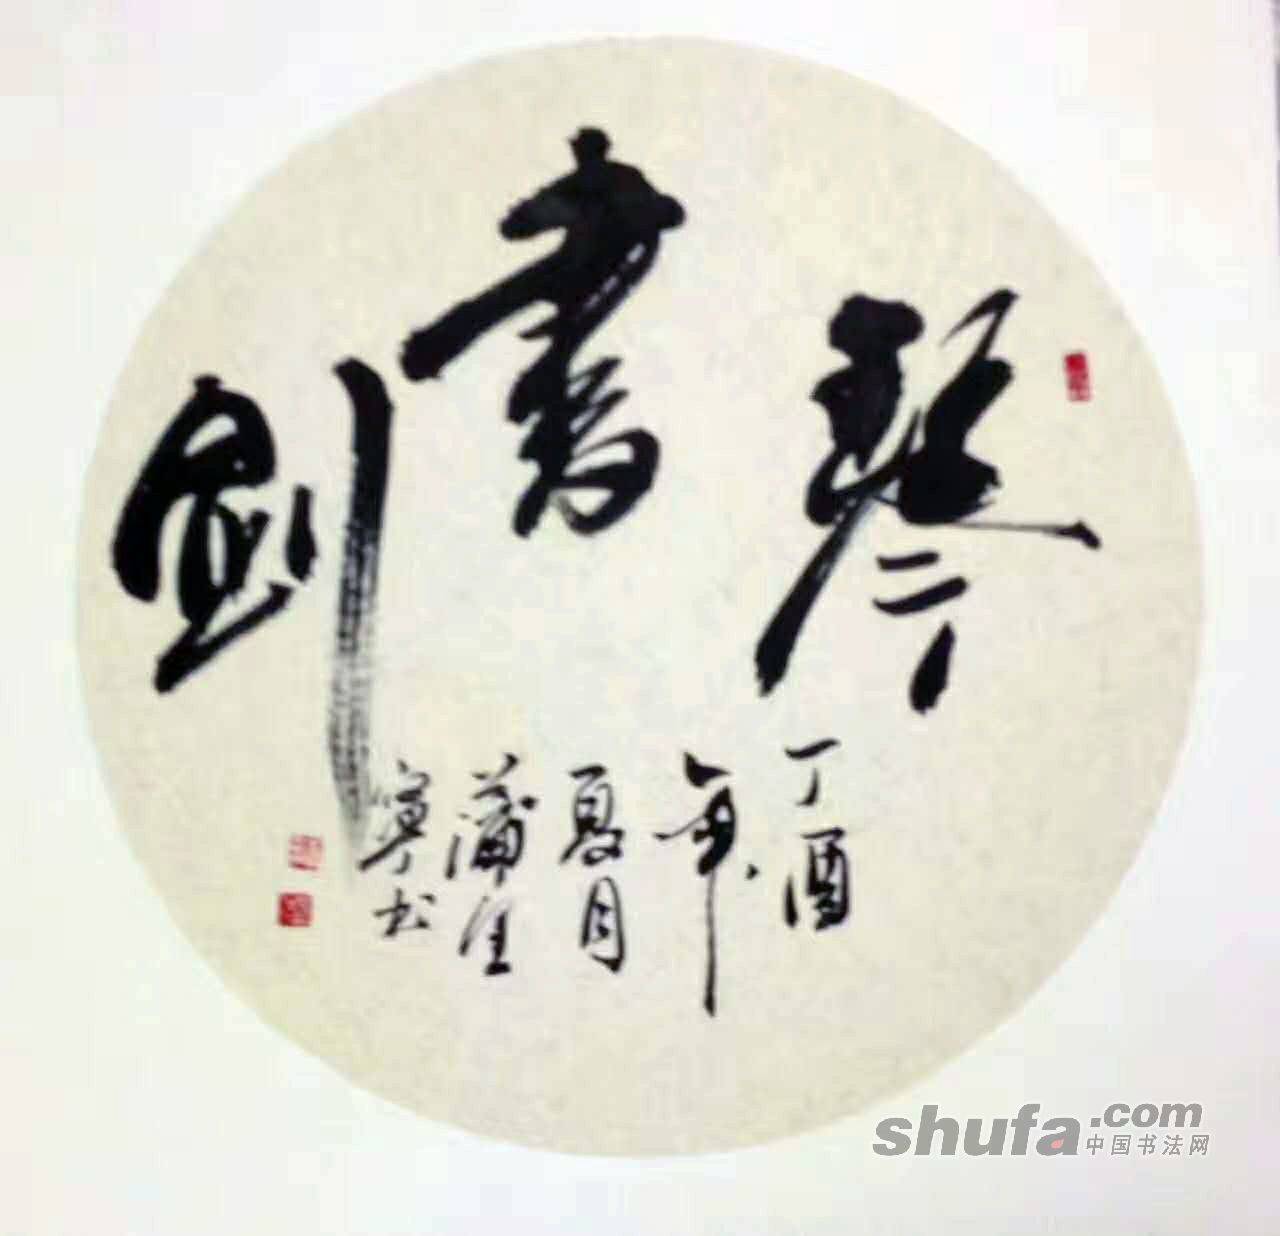 琴書劍
丁酉
年
夏月
蒲生
寧松
shufa.com
中国书法网